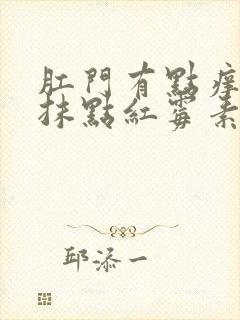 肛門有點痒
抹點紅霉素
邱添一